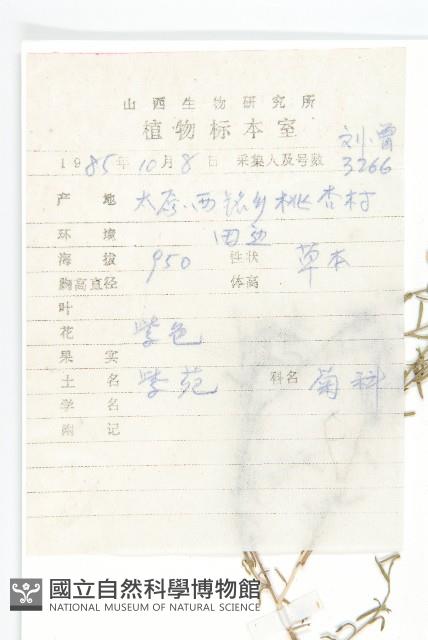 山西生物研究所
植物标本室
刘小曾
1985年10月8日 采集人及号数 3266
产地 太原.西铭乡桃杏村
环境 田边
海拔 950 性状 草本
胸高直径 体高
叶
花 紫色
果实
土名 紫苑 科名 菊科
学名
附记
國立自然科學博物館
NATIONAL MUSEUM OF NATURAL SCIENCE